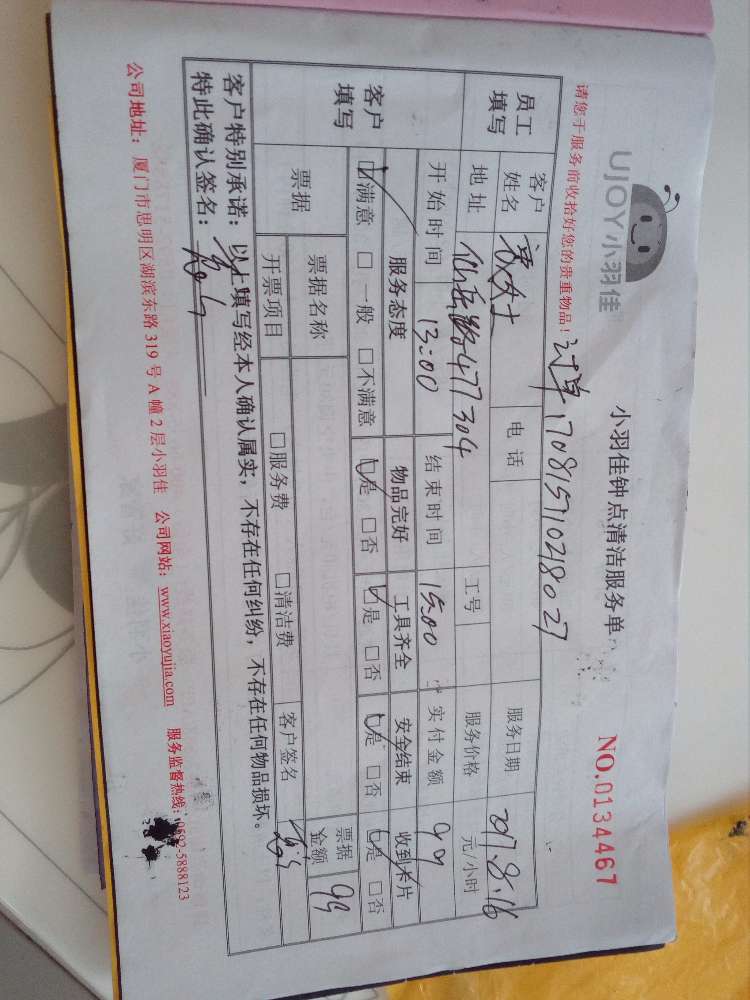 UJOY小羽佳
小羽佳钟点清洁服务单
NO.0134467
请您于服务前收拾好您的贵重物品！ 订单1708157102180 27
员工填写 客户姓名 女士 电话 服务日期 2017.8.16
地址 仙岳路477 304 工号 服务价格 元/小时
开始时间 13:00 结束时间 15:00 实付金额 99
客户填写 服务态度 物品完好 工具齐全 安全结束 收到卡片
☑满意 □一般 □不满意 ☑是 □否 ☑是 □否 ☑是 □否 ☑是 □否
票据 票据名称 票据金额 99
开票项目 □服务费 □清洁费 客户签名
客户特别承诺：以上填写经本人确认属实，不存在任何纠纷，不存在任何物品损坏。
特此确认签名：
公司地址：厦门市思明区湖滨东路319号A幢2层小羽佳 公司网站：www.xiaoyujia.com 服务监督热线：0592-5888123